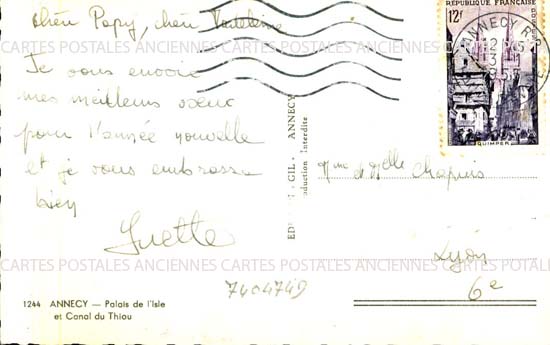 chère Papy, chère
Je vous envoie
mes meilleurs vœux
pour l'année nouvelle
et je vous embrasse
bien
Yvette
1244 ANNECY — Palais de l'Isle
et Canal du Thiou
7404749
GIL - ANNECY
Interdite
RÉPUBLIQUE FRANÇAISE
12F
QUIMPER
ANNECY R.P.
Mme et Melle Chapuis
Lyon
6e
CARTES POSTALES ANCIENNES CARTES POSTALES ANCIENNES CARTES POSTALES
CARTES POSTALES ANCIENNES CARTES POSTALES ANCIENNES CARTES POSTALES